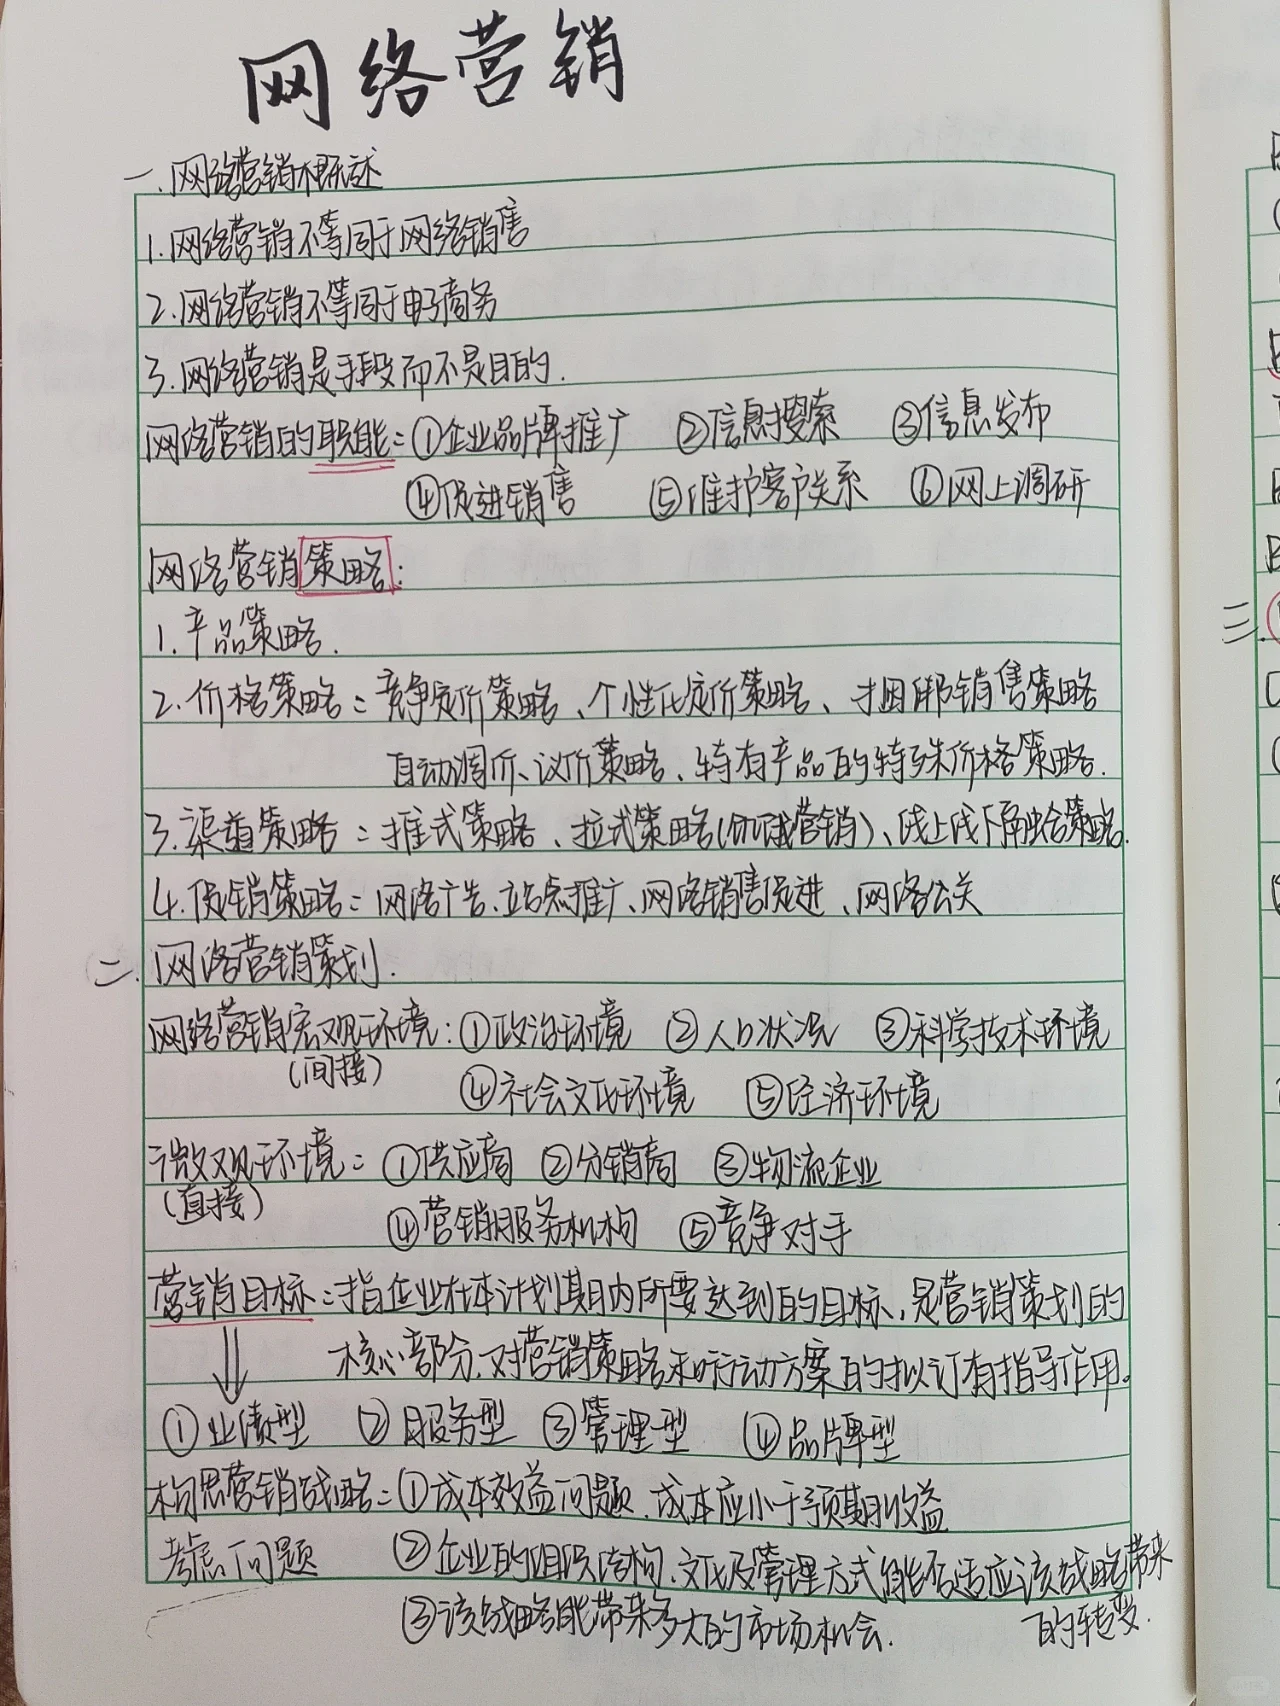 网络营销
一.网络营销概述
1.网络营销不等同于网络销售
2.网络营销不等同于电子商务
3.网络营销是手段而不是目的.
网络营销的职能:①企业品牌推广 ②信息搜索 ③信息发布
④促进销售 ⑤维护客户关系 ⑥网上调研
网络营销策略:
1.产品策略.
2.价格策略:竞争定价策略、个性化定价策略、捆绑销售策略
自动调价、议价策略、特有产品的特殊价格策略.
3.渠道策略:推式策略、拉式策略(饥饿营销)、线上线下融合策略.
4.促销策略:网络广告、站点推广、网络销售促进、网络公关
二.网络营销策划.
网络营销宏观环境:①政治环境 ②人口状况 ③科学技术环境
(间接)
④社会文化环境 ⑤经济环境
微观环境:①供应商 ②分销商 ③物流企业
(直接)
④营销服务机构 ⑤竞争对手
营销目标:指企业在本计划期内所要达到的目标,是营销策划的
核心部分,对营销策略和行动方案的拟订有指导作用。
①业绩型 ②服务型 ③管理型 ④品牌型
构思营销战略:①成本效益问题,成本应小于预期收益
考虑问题 ②企业的组织结构、文化及管理方式能否适应该战略带来
的转变.
③该战略能带来多大的市场机会.
三.